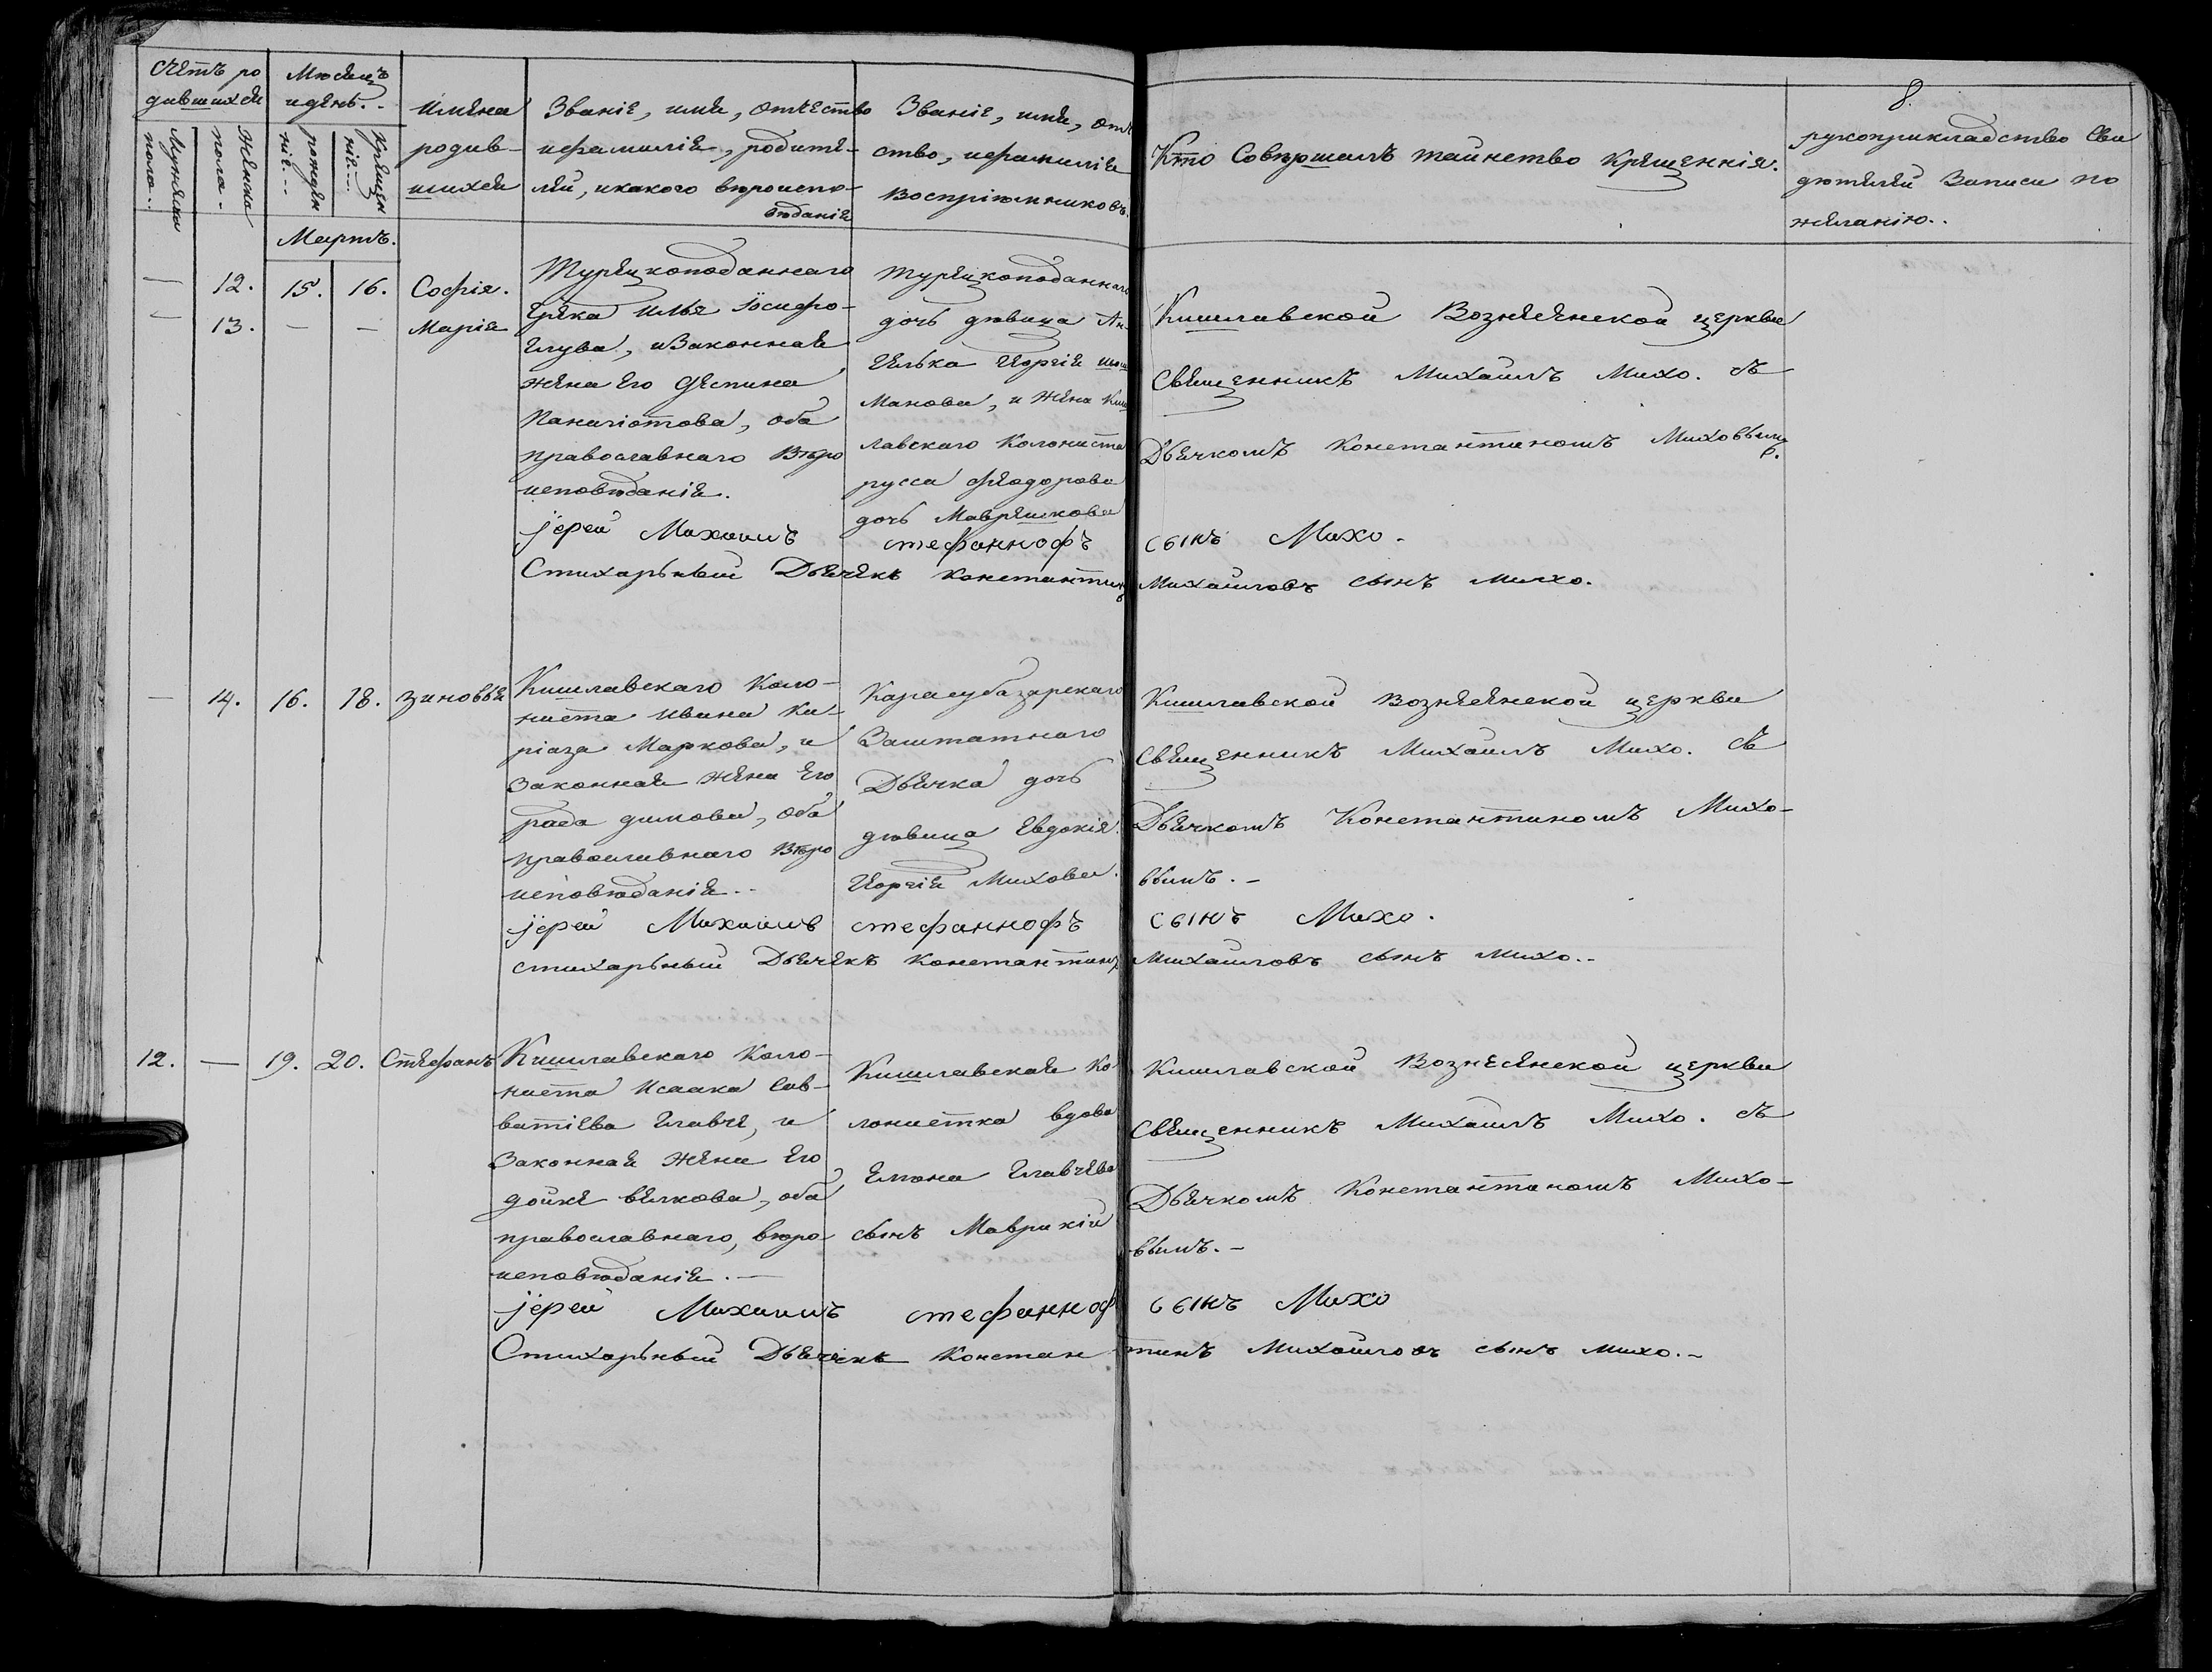 Счетъ ро
дившихся
Мужеска
пола..
Женска
пола.
Мѣсяцъ
и день..
рожден
ніе...
Крещен
ніе...
Имена
родив-
шихся
Званіе, имя, отчество
и фамилія, родите-
лей, и какого вѣроиспо-
вѣданія
Званіе, имя, отче
ство, и фамилія
Воспріѣмниковъ.
Кто Совершалъ таинство Крещеннія.
8.
рукоприкладство Сви
дѣтелей Записи по
желанію..
Мартъ.
— 12. 15. 16. Софія.
— 13. — — Марія
Турецкоподаннаго
Грека Илья Іосифо-
Глува, и Законная
жена Его Деспина
Панаіотова, оба
православнаго Вѣро
исповѣданія.
Турецкоподаннаго
дочь дѣвица Ан-
гелька Георгія
Манова, и жена Киш
лавскаго Колониста
русса Феодорова
дочь Маврешкова
Кишлавской Вознесенской церкви
Священникъ Михаилъ Михо. Съ
Дьячкомъ Константиномъ Миховымъ.
јерей Михаилъ стефаннофъ сынъ Михо.
Стихарьный Дьячекъ Константинъ Михайловъ сынъ Михо.
— 14. 16. 18. Зиновья
Кишлавскаго Коло-
ниста Ивана Ки-
ріаза Маркова, и
Законная жена Его
рада димова, оба
православнаго Вѣро
исповѣданія..
Карасубазарскаго
Заштатнаго
Дьячка дочь
дѣвица Евдокія
Георгія Михова.
Кишлавской Вознесенской церкви
Священникъ Михаилъ Михо. Съ
Дьячкомъ Константиномъ Михо-
вымъ.-
јерей Михаилъ стефаннофъ сынъ Михо.
стихарьный Дьячекъ Константинъ Михайловъ сынъ Михо..-
12. — 19. 20. Стефанъ
Кишлавскаго Коло-
ниста Исаака Сав-
ватіева Главче, и
Законная жена Его
дойке велкова, оба
православнаго, вѣро-
исповѣданія.—
Кишлавская Ко
лонистка вдова
Елена Главчева
сынъ Маврикій
Кишлавской Вознесенской церкви
Священникъ Михаилъ Михо. Съ
Дьячкомъ Константиномъ Михо-
вымъ.-
јерей Михаилъ стефанноф сынъ Михо
Стихарьный Дьячекъ Константинъ Михайловъ сынъ Михо.-